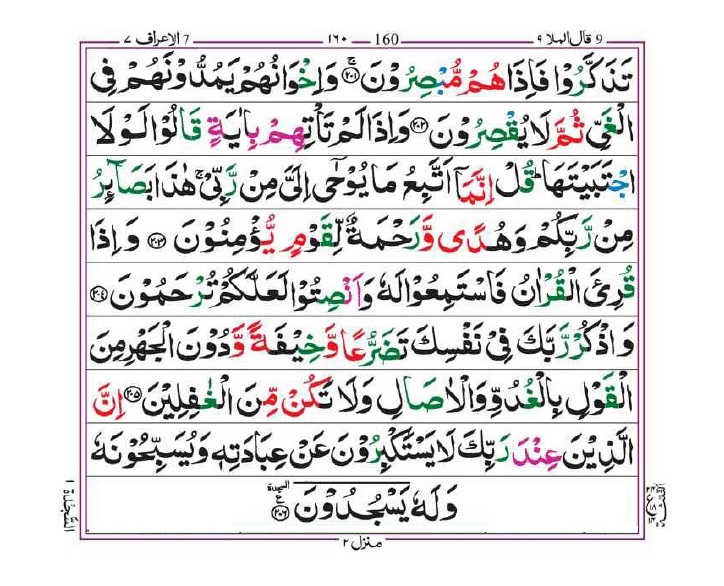 ٧ الاعراف 7 ١٦٠ 160 ٩ قال الملا 9
تَذَكَّرُوْا فَاِذَا هُمْ مُّبْصِرُوْنَ ۚ﴿۲۰۱﴾ وَاِخْوَانُهُمْ يَمُدُّوْنَهُمْ فِى
الْغَىِّ ثُمَّ لَا يُقْصِرُوْنَ ﴿۲۰۲﴾ وَاِذَا لَمْ تَاْتِهِمْ بِاٰيَةٍ قَالُوْا لَوْلَا
اجْتَبَيْتَهَا ؕ قُلْ اِنَّمَاۤ اَتَّبِعُ مَا يُوْحٰۤى اِلَىَّ مِنْ رَّبِّىْ ۚ هٰذَا بَصَآئِرُ
مِنْ رَّبِّكُمْ وَهُدًى وَّرَحْمَةٌ لِّقَوْمٍ يُّؤْمِنُوْنَ ﴿۲۰۳﴾ وَاِذَا
قُرِئَ الْقُرْاٰنُ فَاسْتَمِعُوْا لَهٗ وَاَنْصِتُوْا لَعَلَّكُمْ تُرْحَمُوْنَ ﴿۲۰۴﴾
وَاذْكُرْ رَّبَّكَ فِىْ نَفْسِكَ تَضَرُّعًا وَّخِيْفَةً وَّدُوْنَ الْجَهْرِ مِنَ
الْقَوْلِ بِالْغُدُوِّ وَالْاٰصَالِ وَلَا تَكُنْ مِّنَ الْغٰفِلِيْنَ ﴿۲۰۵﴾ اِنَّ
الَّذِيْنَ عِنْدَ رَبِّكَ لَا يَسْتَكْبِرُوْنَ عَنْ عِبَادَتِهٖ وَيُسَبِّحُوْنَهٗ
وَلَهٗ يَسْجُدُوْنَ ﴿۲۰۶﴾ السجدة ع
السَّجْدَة ١
منزل ٢